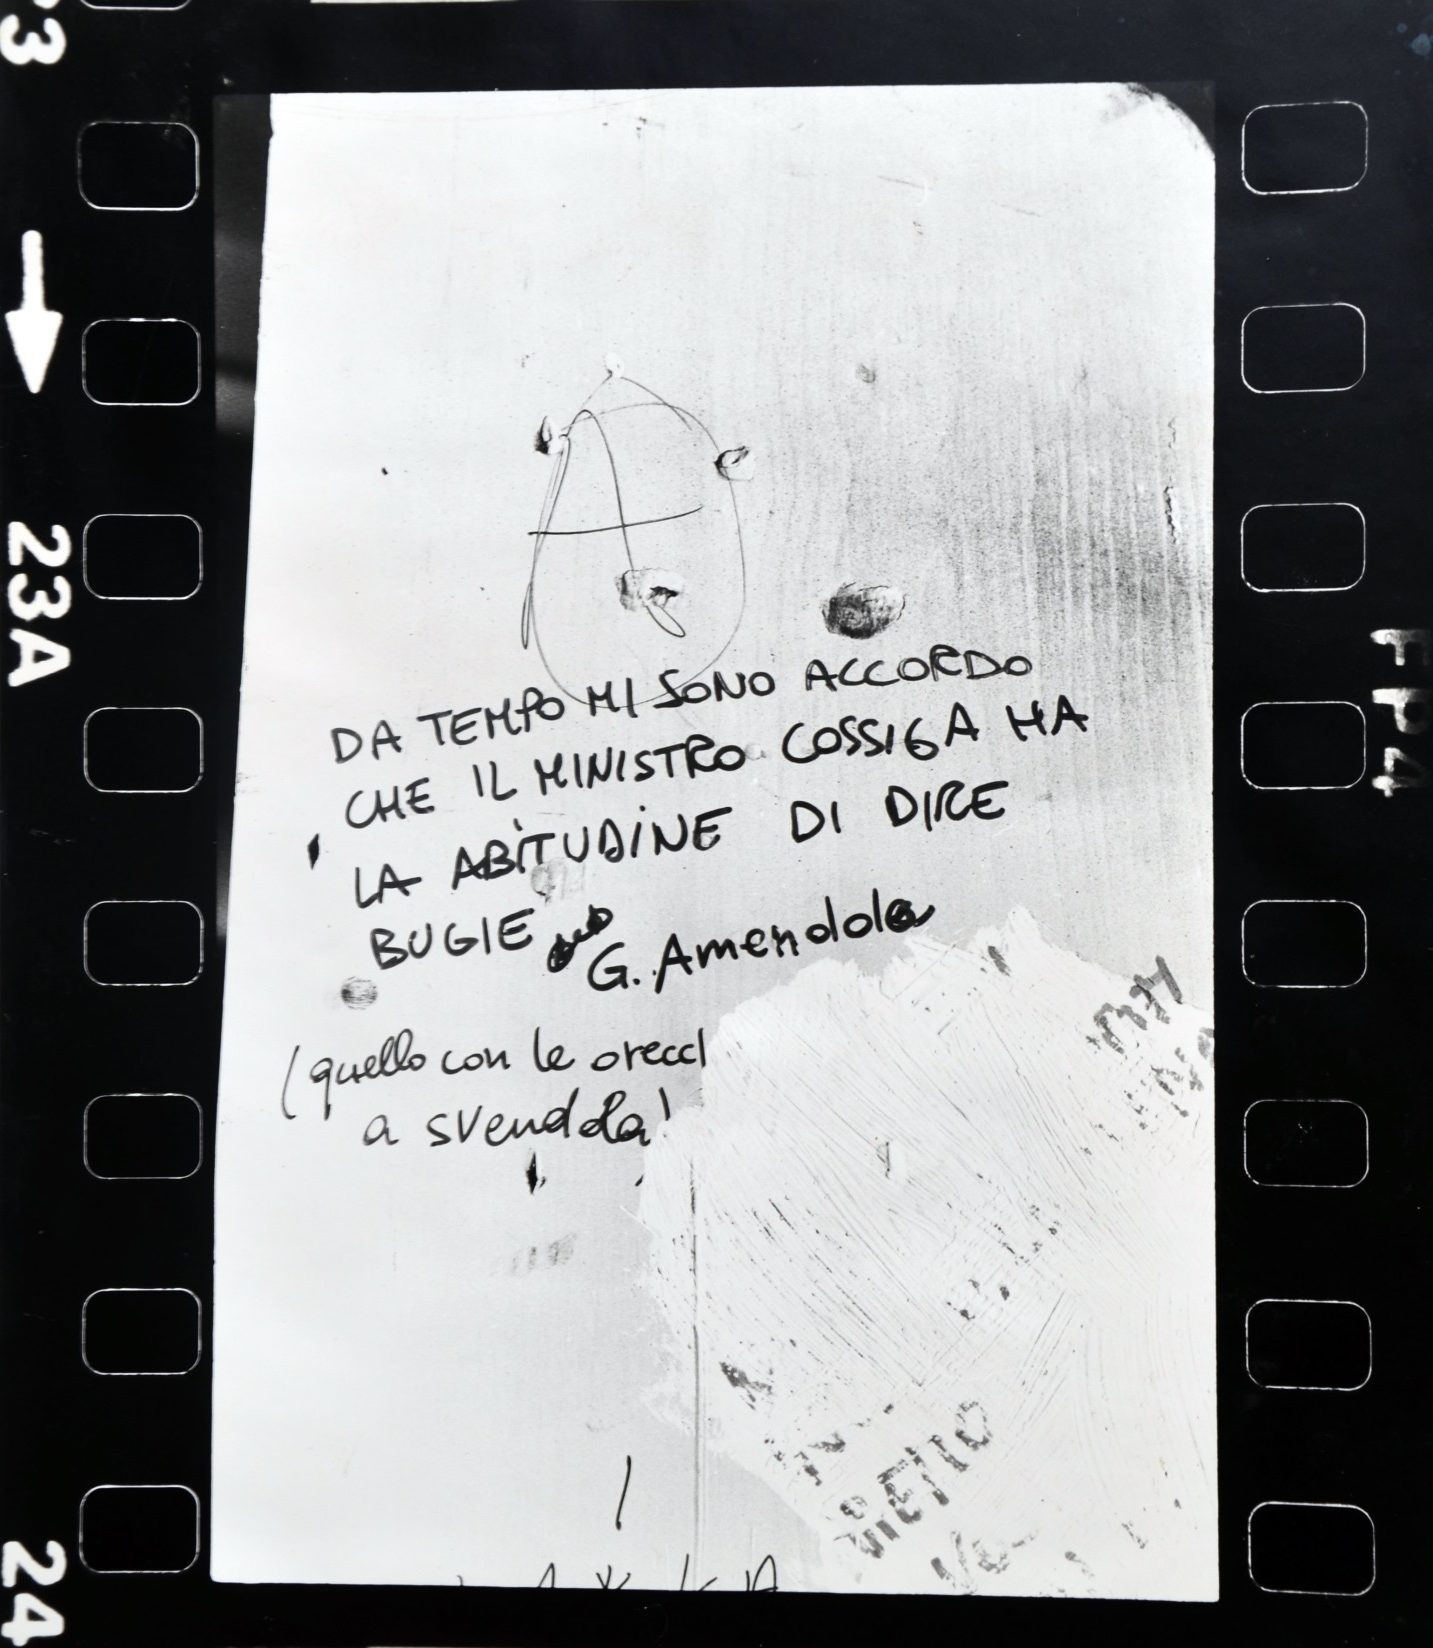 DA TEMPO MI SONO ACCORDO
CHE IL MINISTRO COSSIGA HA
LA ABITUDINE DI DIRE
BUGIE
G. Amendola
(quello con le orecc
a svendola)
23A
24
FP4